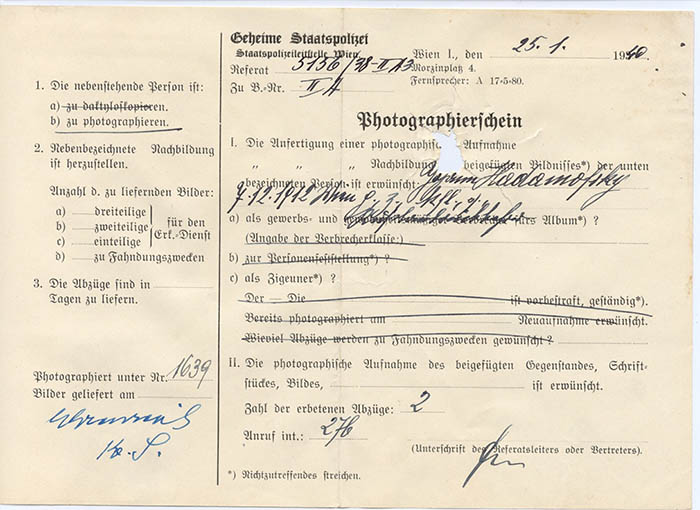 Geheime Staatspolizei
Staatspolizeileitstelle Wien
Wien I., den 25. 1. 1940
Referat 5156/38-II A3
Morzinplatz 4.
Zu B.-Nr. II A
Fernsprecher: A 17-5-80.
1. Die nebenstehende Person ist:
a) zu daktyloskopieren.
b) zu photographieren.
2. Nebenbezeichnete Nachbildung
ist herzustellen.
Anzahl d. zu liefernden Bilder:
a) dreiteilige
b) zweiteilige
c) einteilige
für den
Erk.-Dienst
d) zu Fahndungszwecken
3. Die Abzüge sind in
Tagen zu liefern.
Photographiert unter Nr. 1639
Bilder geliefert am
Photographierschein
I. Die Anfertigung einer photographischen Aufnahme
„ „ „ Nachbildung beigefügten Bildnisses*) der unten
bezeichneten Person ist erwünscht: Hadamofsky
7. 12. 1912 Wien
a) als gewerbs- und fürs Album*) ?
(Angabe der Verbrecherklasse:)
b) zur Personenfeststellung*) ?
c) als Zigeuner*) ?
Der — Die ist vorbestraft, geständig*).
Bereits photographiert am Neuaufnahme erwünscht.
Wieviel Abzüge werden zu Fahndungszwecken gewünscht ?
II. Die photographische Aufnahme des beigefügten Gegenstandes, Schrift-
stückes, Bildes, ist erwünscht.
Zahl der erbetenen Abzüge: 2
Anruf int.: 276
(Unterschrift des Referatsleiters oder Vertreters).
*) Nichtzutreffendes streichen.